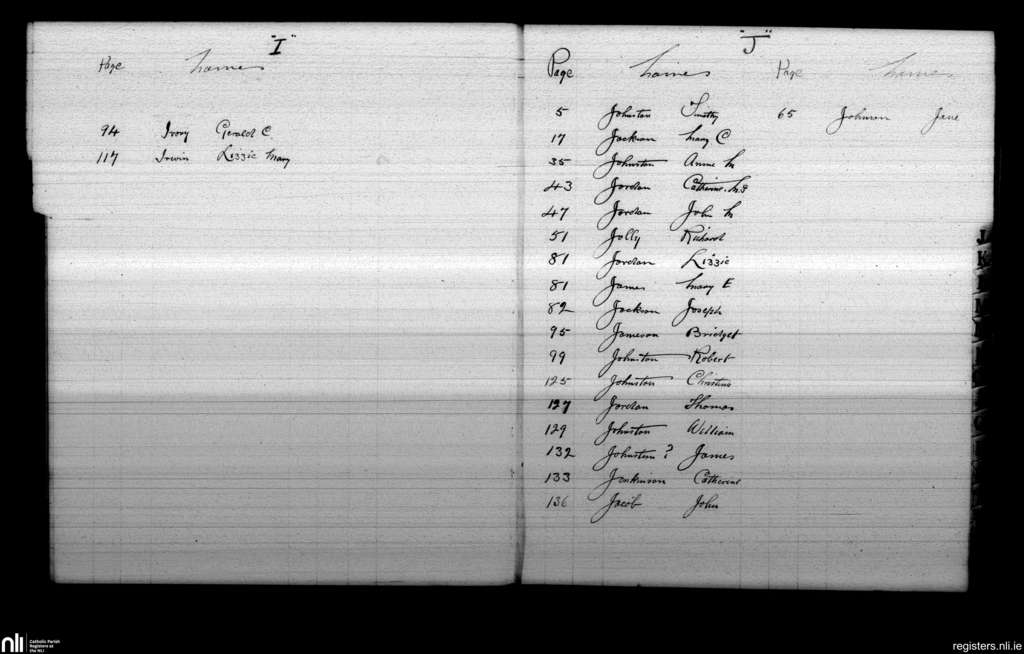 "I"
Page Names
94 Ivory Gerald C
117 Irwin Lizzie Mary
"J"
Page Names Page Names
5 Johnston Smithy 65 Johnson Jane
17 Jackson Mary C
35 Johnston Annie M
43 Jordan Catherine
47 Jordan John M
51 Jolly Richard
81 Jordan Lizzie
81 James Mary E
82 Jackson Joseph
95 Jameson Bridget
99 Johnston Robert
125 Johnston
127 Jordan Thomas
129 Johnston William
132 Johnston? James
133 Jenkinson Catherine
136 Jacob John
J
K
nli Catholic Parish
Registers at
the NLI
registers.nli.ie